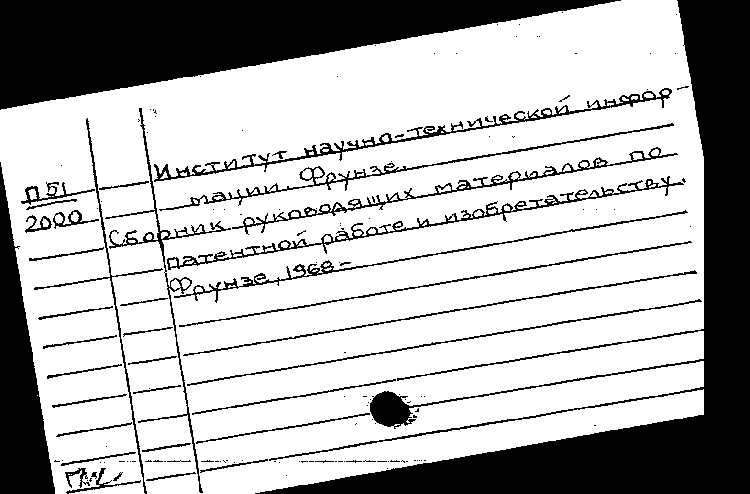 Институт научно-технической инфор-
П 51
мации. Фрунзе.
2000
Сборник руководящих материалов по
патентной работе и изобретательству.
Фрунзе, 1968-